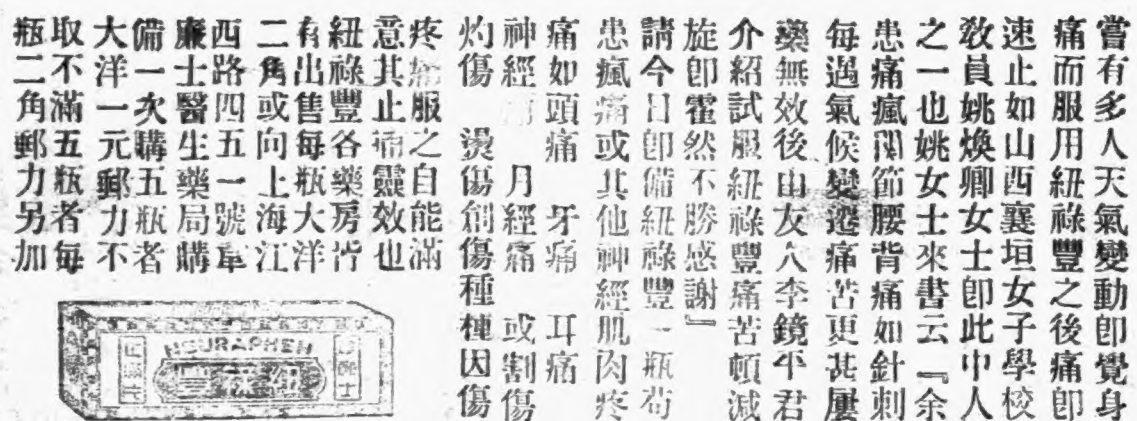 嘗有多人天氣變動卽覺身
痛而服用紐祿豐之後痛卽
速止如山西襄垣女子學校
敎員姚煥卿女士卽此中人
之一也姚女士來書云『余
患痛瘋關節腰背痛如針刺
每遇氣候變遷痛苦更甚屢
藥無效後由友人李鏡平君
介紹試服紐祿豐痛苦頓減
旋卽霍然不勝感謝』
請今日卽備紐祿豐一瓶苟
患瘋痛或其他神經肌肉疼
痛如頭痛 牙痛 耳痛
神經痛 月經痛 或割傷
灼傷 燙傷創傷種種因傷
疼痛服之自能滿
意其止痛靈效也
紐祿豐各藥房皆
有出售每瓶大洋
二角或向上海江
西路四五一號韋
廉士醫生藥局購
備一次購五瓶者
大洋一元郵力不
取不滿五瓶者每
瓶二角郵力另加
NEURAPHEN
豐祿紐